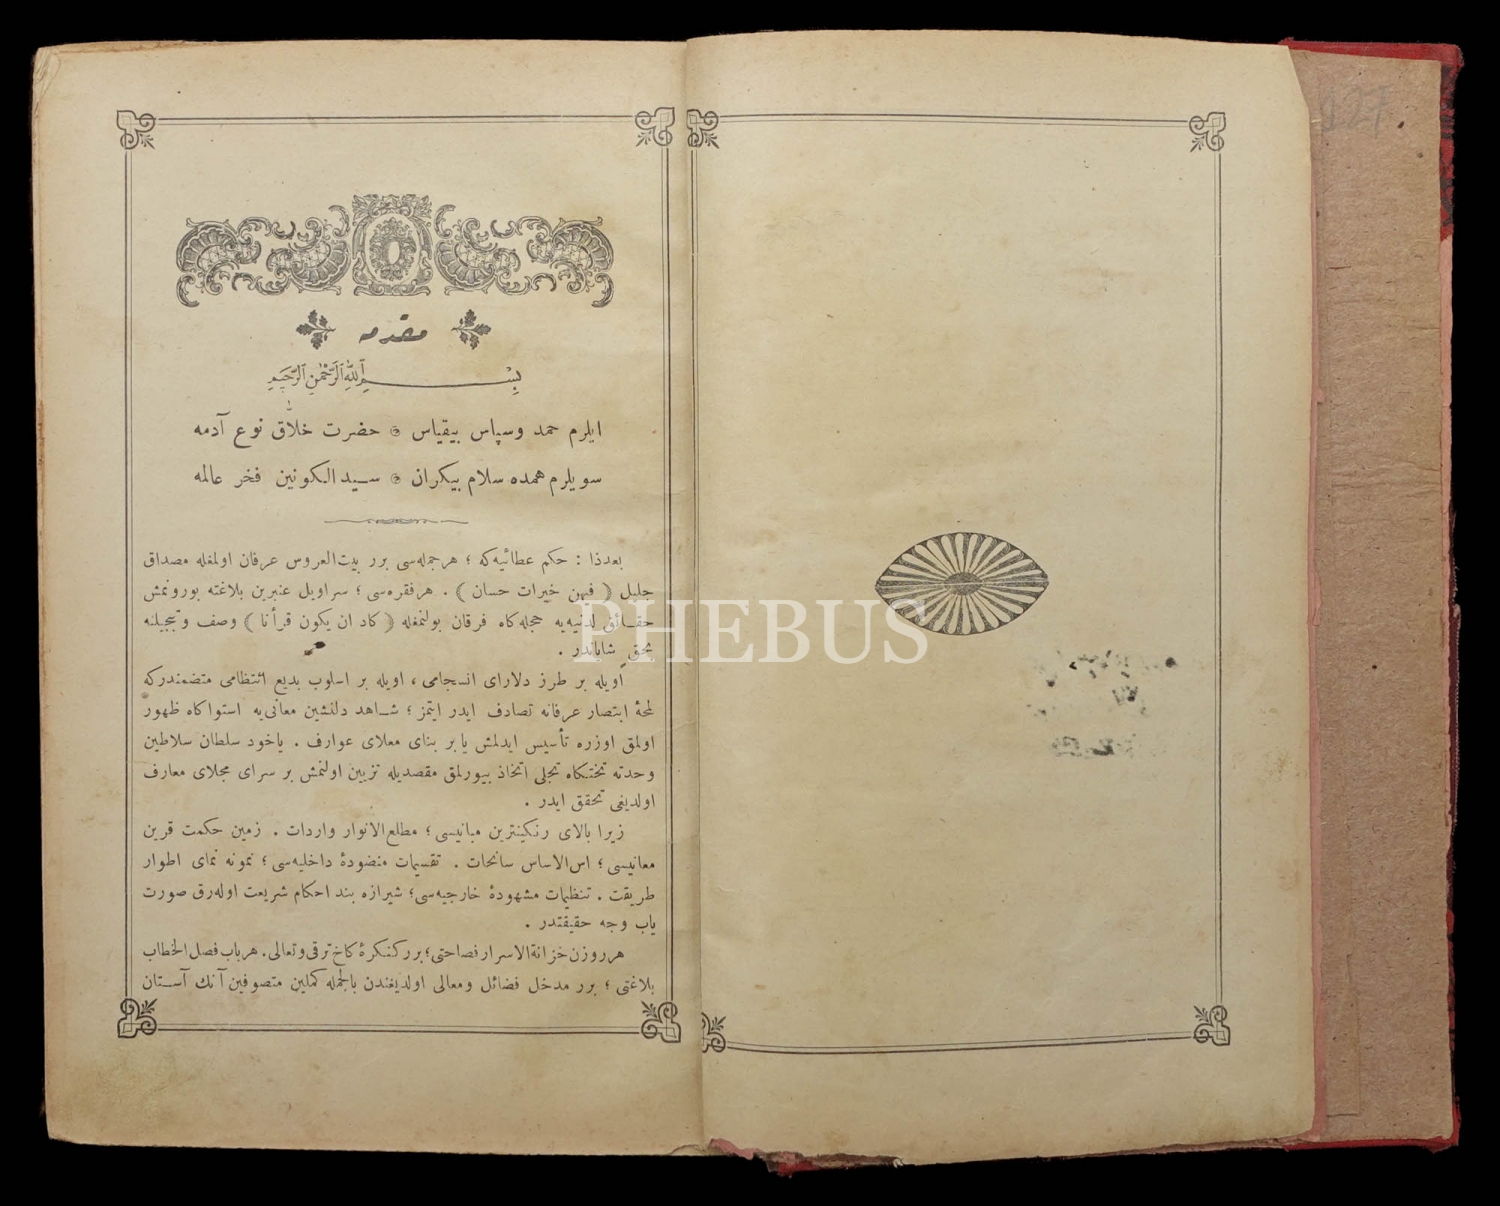 127
مقدمه
بِسْمِ ٱللهِ ٱلرَّحْمٰنِ ٱلرَّحِيمِ
ایلرم حمد وسپاس بیقیاس ۞ حضرت خلاّق نوع آدمه
سویلرم همده سلام بیکران ۞ سیدالکونین فخر عالمه
بعدذا : حکم عطائیه‌که ؛ هرجمله‌سی برر بیت‌العروس عرفان اولمغله مصداق
جلیل ( فیهن خیرات حسان ) . هرفقره‌سی ؛ سراویل عنبرین بلاغته بورونمش
حقائق لدنیه‌یه حجله‌کاه فرقان بولنمغله ( کاد ان یکون قرأنا ) وصف و تبجیلنه
بحق شایاندر .
اویله بر طرز دلارای انسجامی ، اویله بر اسلوب بدیع انتظامی متضمندرکه
لمحهٔ ابتصار عرفانه تصادف ایدر ایتمز ؛ شاهد دلنشین معانی‌یه استواکاه ظهور
اولمق اوزره تأسیس ایدلمش یا بر بنای معلای عوارف . یاخود سلطان سلاطین
وحدته تختکاه تجلی اتخاذ بیورلمق مقصدیله تزیین اولنمش بر سرای مجلای معارف
اولدیغی تحقق ایدر .
زیرا بالای رنکینترین مبانیسی ؛ مطلع‌الانوار واردات . زمین حکمت قرین
معانیسی ؛ اس‌الاساس سانحات . تقسیمات منضودهٔ داخلیه‌سی ؛ نمونه نمای اطوار
طریقت . تنظیمات مشهودهٔ خارجیه‌سی ؛ شیرازه بند احکام شریعت اوله‌رق صورت
یاب وجه حقیقتدر .
هرروزن خزانةالاسرار فصاحتی ؛ برر کنکرهٔ کاخ ترقی وتعالی . هرباب فصل الخطاب
بلاغتی ؛ برر مدخل فضائل ومعالی اولدیغندن بالجمله کملین متصوفین آنك آستان
PHEBUS